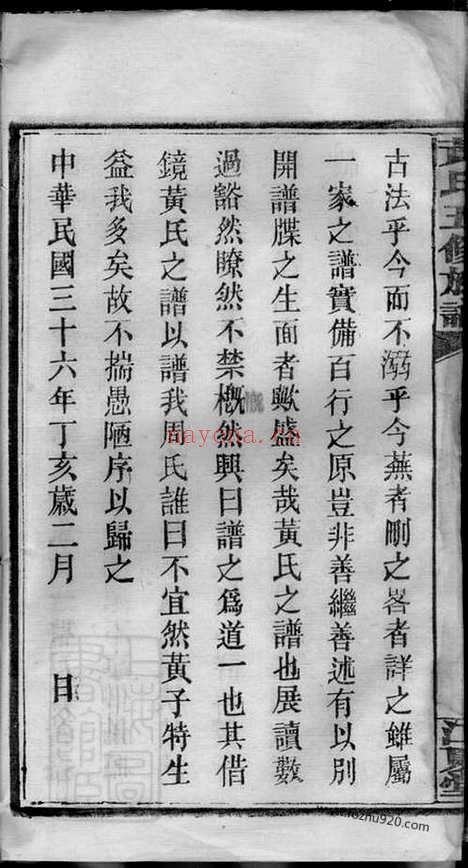 古法乎今而不溺乎今蕪者刪之畧者詳之雖屬
一家之譜實備百行之原豈非善繼善述有以別
開譜牒之生面者歟盛矣哉黃氏之譜也展讀數
過豁然瞭然不禁概然興曰譜之爲道一也其借
慨
鏡黃氏之譜以譜我周氏誰曰不宜然黃子特生
益我多矣故不揣愚陋序以歸之
中華民國三十六年丁亥歲二月 日
黃氏五修族譜
江夏堂
nayona.cn